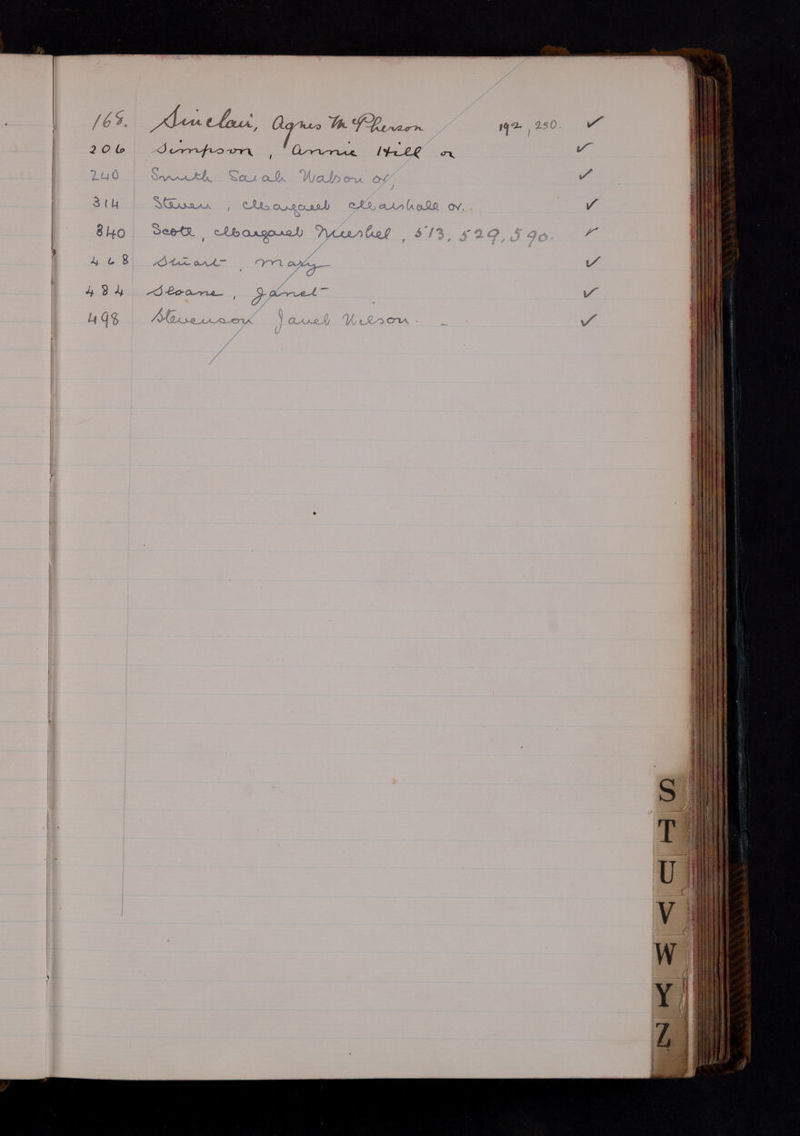 168. Sinclair, Agnes McPherson 192, 250. ✓
206 Simpson, Annie Hill or ✓
240 Smith Sarah Watson or, ✓
314 Steven, Margaret Marshall or. ✓
340 Scott, Margaret, 513, 529, 590. ✓
468 Stuart, Mary ✓
484 Sloane, Janet ✓
498 Stevenson Janet Wilson. ✓
S
T
U
V
W
Y
Z